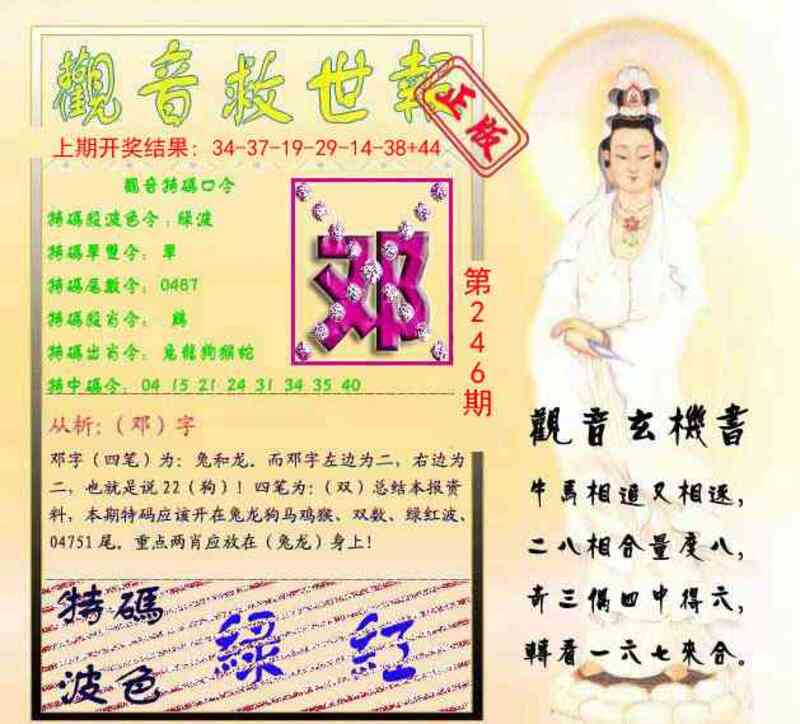 觀音救世報
正版
上期开奖结果：34-37-19-29-14-38+44
觀音特碼口令
特碼殺波色令：绿波
特碼單雙令：單
特碼尾數令：0487
特碼殺肖令：鷄
特碼出肖令：兔龍狗猴蛇
特中碼令：04 15 21 24 31 34 35 40
邓
第246期
从析：（邓）字
邓字（四笔）为：兔和龙．而邓字左边为二，右边为
二，也就是说22（狗）！四笔为：（双）总结本报资
料，本期特码应该开在兔龙狗马鸡猴、双数、绿红波、
04751尾．重点两肖应放在（兔龙）身上！
特碼
波色
綠 紅
觀音玄機書
牛馬相追又相逐，
二八相合量度八，
奇三偶四中得六，
轉看一六七來合。